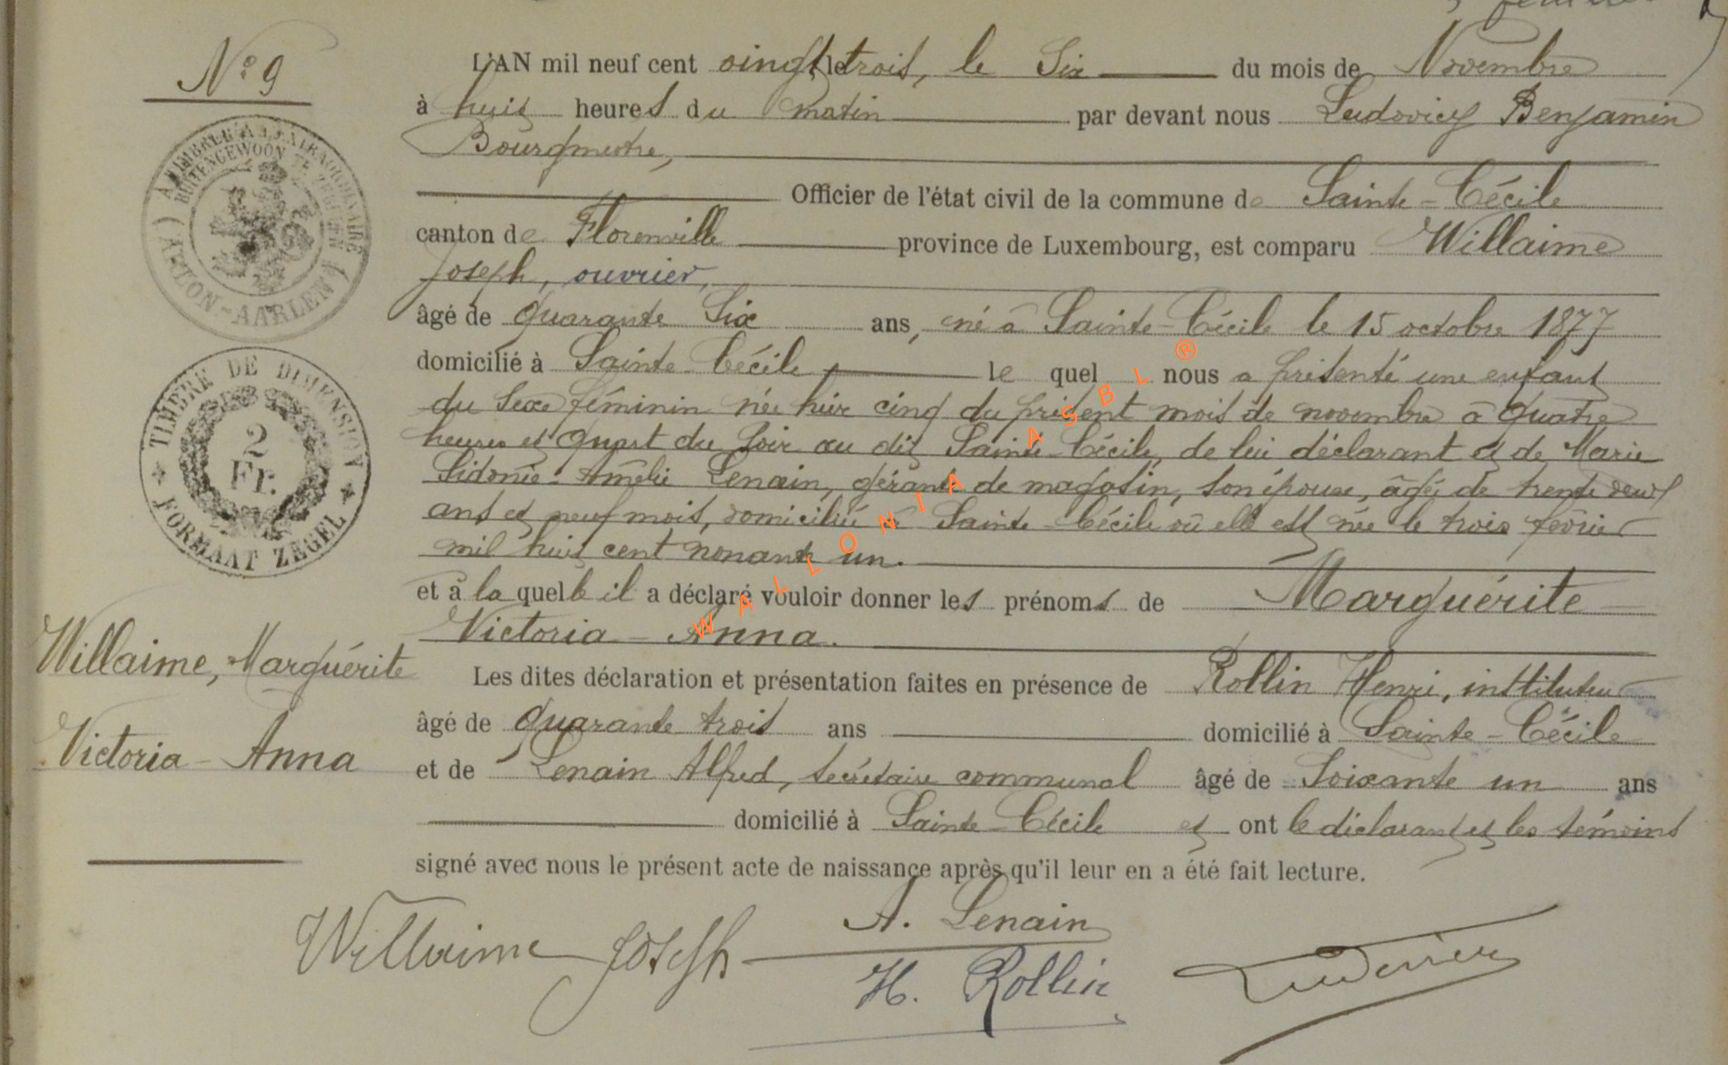 N° 9
L'AN mil neuf cent vingt trois, le Six du mois de Novembre
à huit heures du matin par devant nous Ludovicy Benjamin
Bourgmestre,
Officier de l'état civil de la commune de Sainte-Cécile
canton de Florenville province de Luxembourg, est comparu Willaime
Joseph, ouvrier,
âgé de quarante Six ans, né à Sainte-Cécile le 15 octobre 1877
domicilié à Sainte Cécile le quel nous a présenté une enfant
du sexe féminin née hier cinq du présent mois de novembre à quatre
heures et quart du soir au dit Sainte-Cécile, de lui déclarant et de Marie
Sidonie-Amélie Lenain, gérante de magasin, son épouse, âgée de trente deux
ans et neuf mois, domiciliée à Sainte-Cécile où elle est née le trois février
mil huit cent nonante un.
et à la quelle il a déclaré vouloir donner les prénoms de Marguérite
Victoria-Anna.
Willaime, Marguérite
Victoria-Anna
Les dites déclaration et présentation faites en présence de Rollin Henri, instituteur
âgé de quarante trois ans domicilié à Sainte-Cécile
et de Lenain Alfred, secrétaire communal âgé de soixante un ans
domicilié à Sainte-Cécile et ont le déclarant et les témoins
signé avec nous le présent acte de naissance après qu'il leur en a été fait lecture.
Willaime Joseph
A. Lenain
H. Rollin
TIMBRE DE DIMENSION
2
Fr.
FORMAAT ZEGEL
(ARLON-AARLEN)
WALLONIA ASBL ®